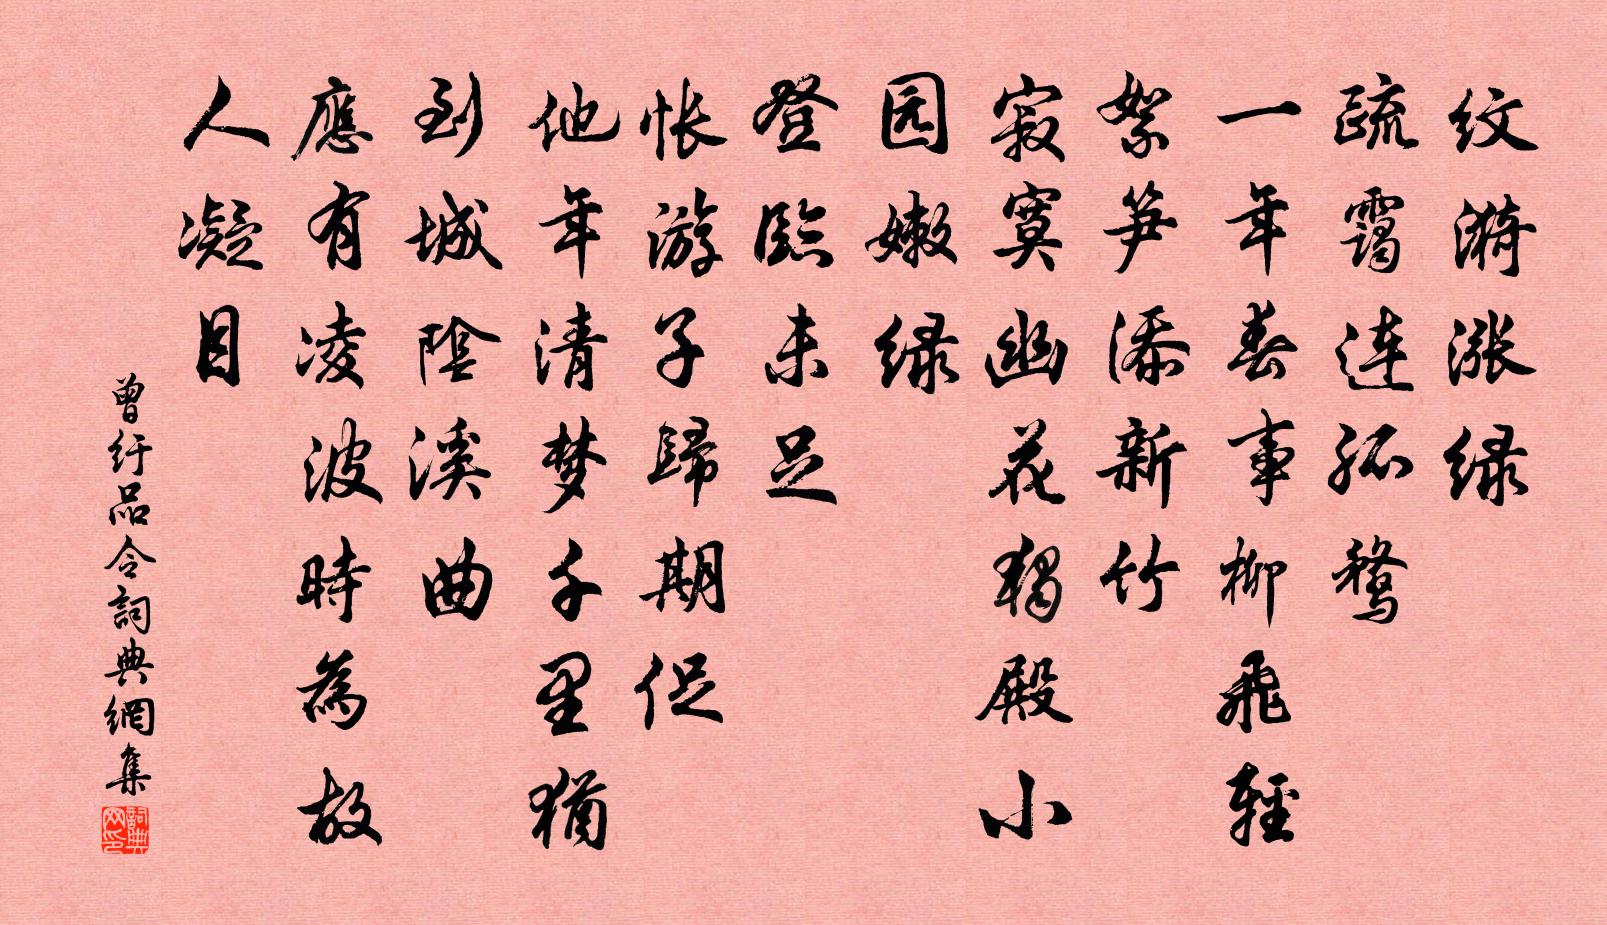 纹漪涨绿
疏靄连孤鹜
一年春事柳飛輕
絮笋添新竹
寂寞幽花独殿小
园嫩绿
登臨未足
怅游子歸期促
他年清梦千里猶
到城陰溪曲
應有凌波時為故
人凝目
曾纡品令詞典網集
詞典网印